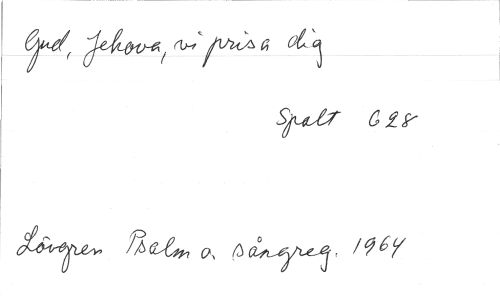 Gud, Jehova, vi prisa dig
Spalt 628
Lövgren Psalm o. sångreg. 1964